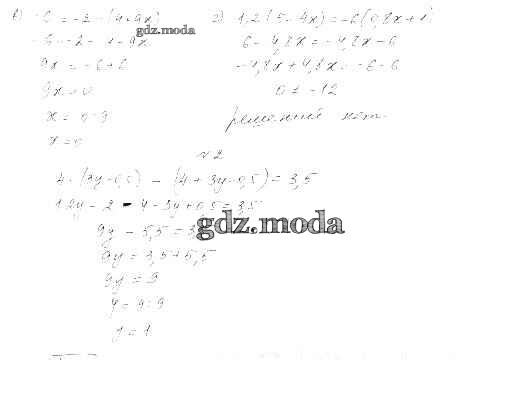 в) -6 = -2 - (4 - 9x)
-6 = -2 - 4 - 9x
9x = -6 + 6
9x = 0
x = 0 : 9
x = 0
г) 1,2(5 - 4x) = -6(0,8x + 1)
6 - 4,8x = -4,8x - 6
-4,8x + 4,8x = -6 - 6
0 ≠ -12
решений нет.
№2
4 · (3y - 0,5) - (4 + 3y - 0,5) = 3,5
12y - 2 - 4 - 3y + 0,5 = 3,5
9y - 5,5 = 3,
9y = 3,5 + 5,5
9y = 9
y = 9 : 9
y = 1
gdz.moda
gdz.moda